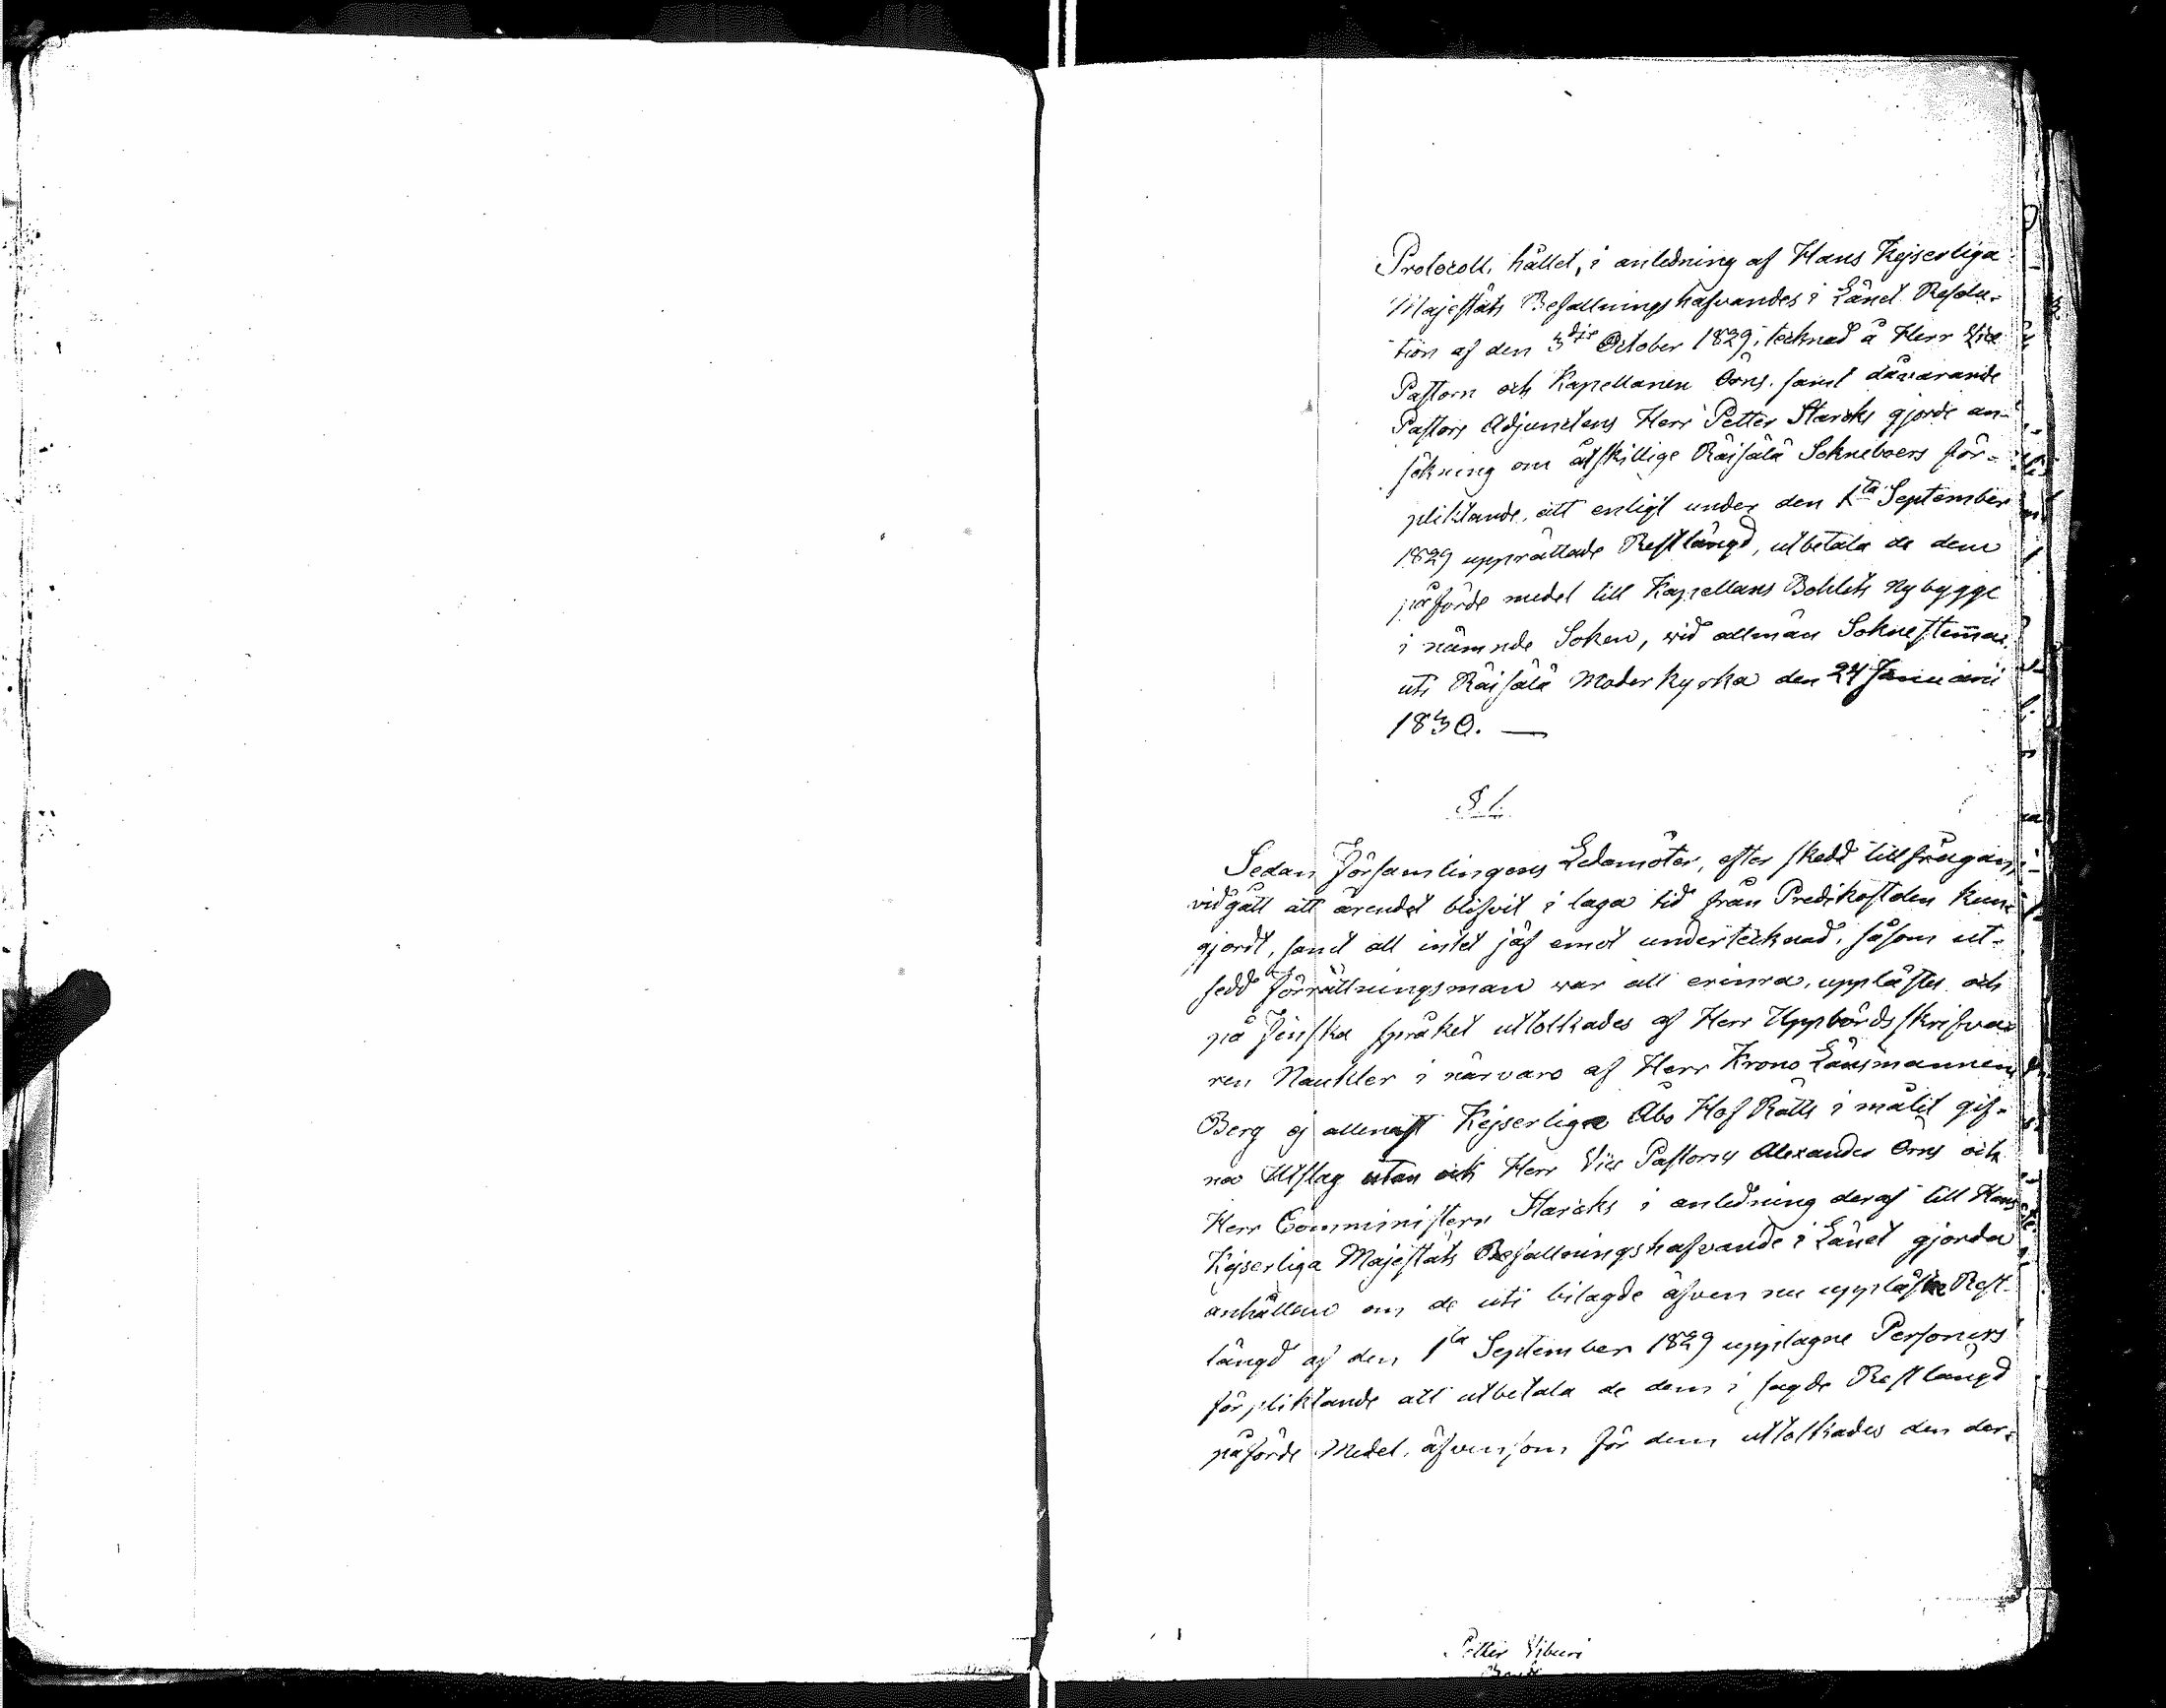 Protocoll, hållet, i anledning af Hans Kejserliga
Majestäts Befallningshafvandes i Länet Resolu-
tion af den 3dje October 1829, tecknad å Herr Vice
Pastorn och Kapellanen Orns. samt dåvarande
Pastors Adjunctens Herr Petter Starcks gjorde an-
sökning om åtskillige Räisälä Sokneboers för-
pliktande, att enligt under den 1sta September
1829 upprättade Restlängd, utbetala de dem
påförde medel till Kapellans Bohlets Nybygge
i nämnde Soken, vid allmän Soknestemma
uti Räisälä Moderkyrka den 24 Januarii
1830. —
§ 1.
Sedan Församlingens Ledamöter, efter skedd tillfrågan,
vidgått att ärendet blifvit i laga tid från Predikostolen kun-
gjordt, samt att intet jäf emot undertecknad, såsom ut-
sedd Förrättningsman var att erinra, upplästes och
på Finska språket uttolkades af Herr Uppbördsskrifva-
ren Naukler i närvaro af Herr Krono Länsmannen
Berg ej allenast Kejserliga Åbo Hof Rätts i målet gif-
na Utslag utan ock Herr Vice Pastorns Alexander Orns och
Herr Comministern Starcks i anledning deraf till Hans
Kejserliga Majestäts Befallningshafvande i Länet gjorda
anhållan om de uti bilagde äfven nu uppläste Rest-
längd af den 1sta September 1829 upptagne Personers
förpliktande att utbetala de dem i sagde Restlängd
påförde Medel, äfvensom för dem uttolkades den der-
Petter